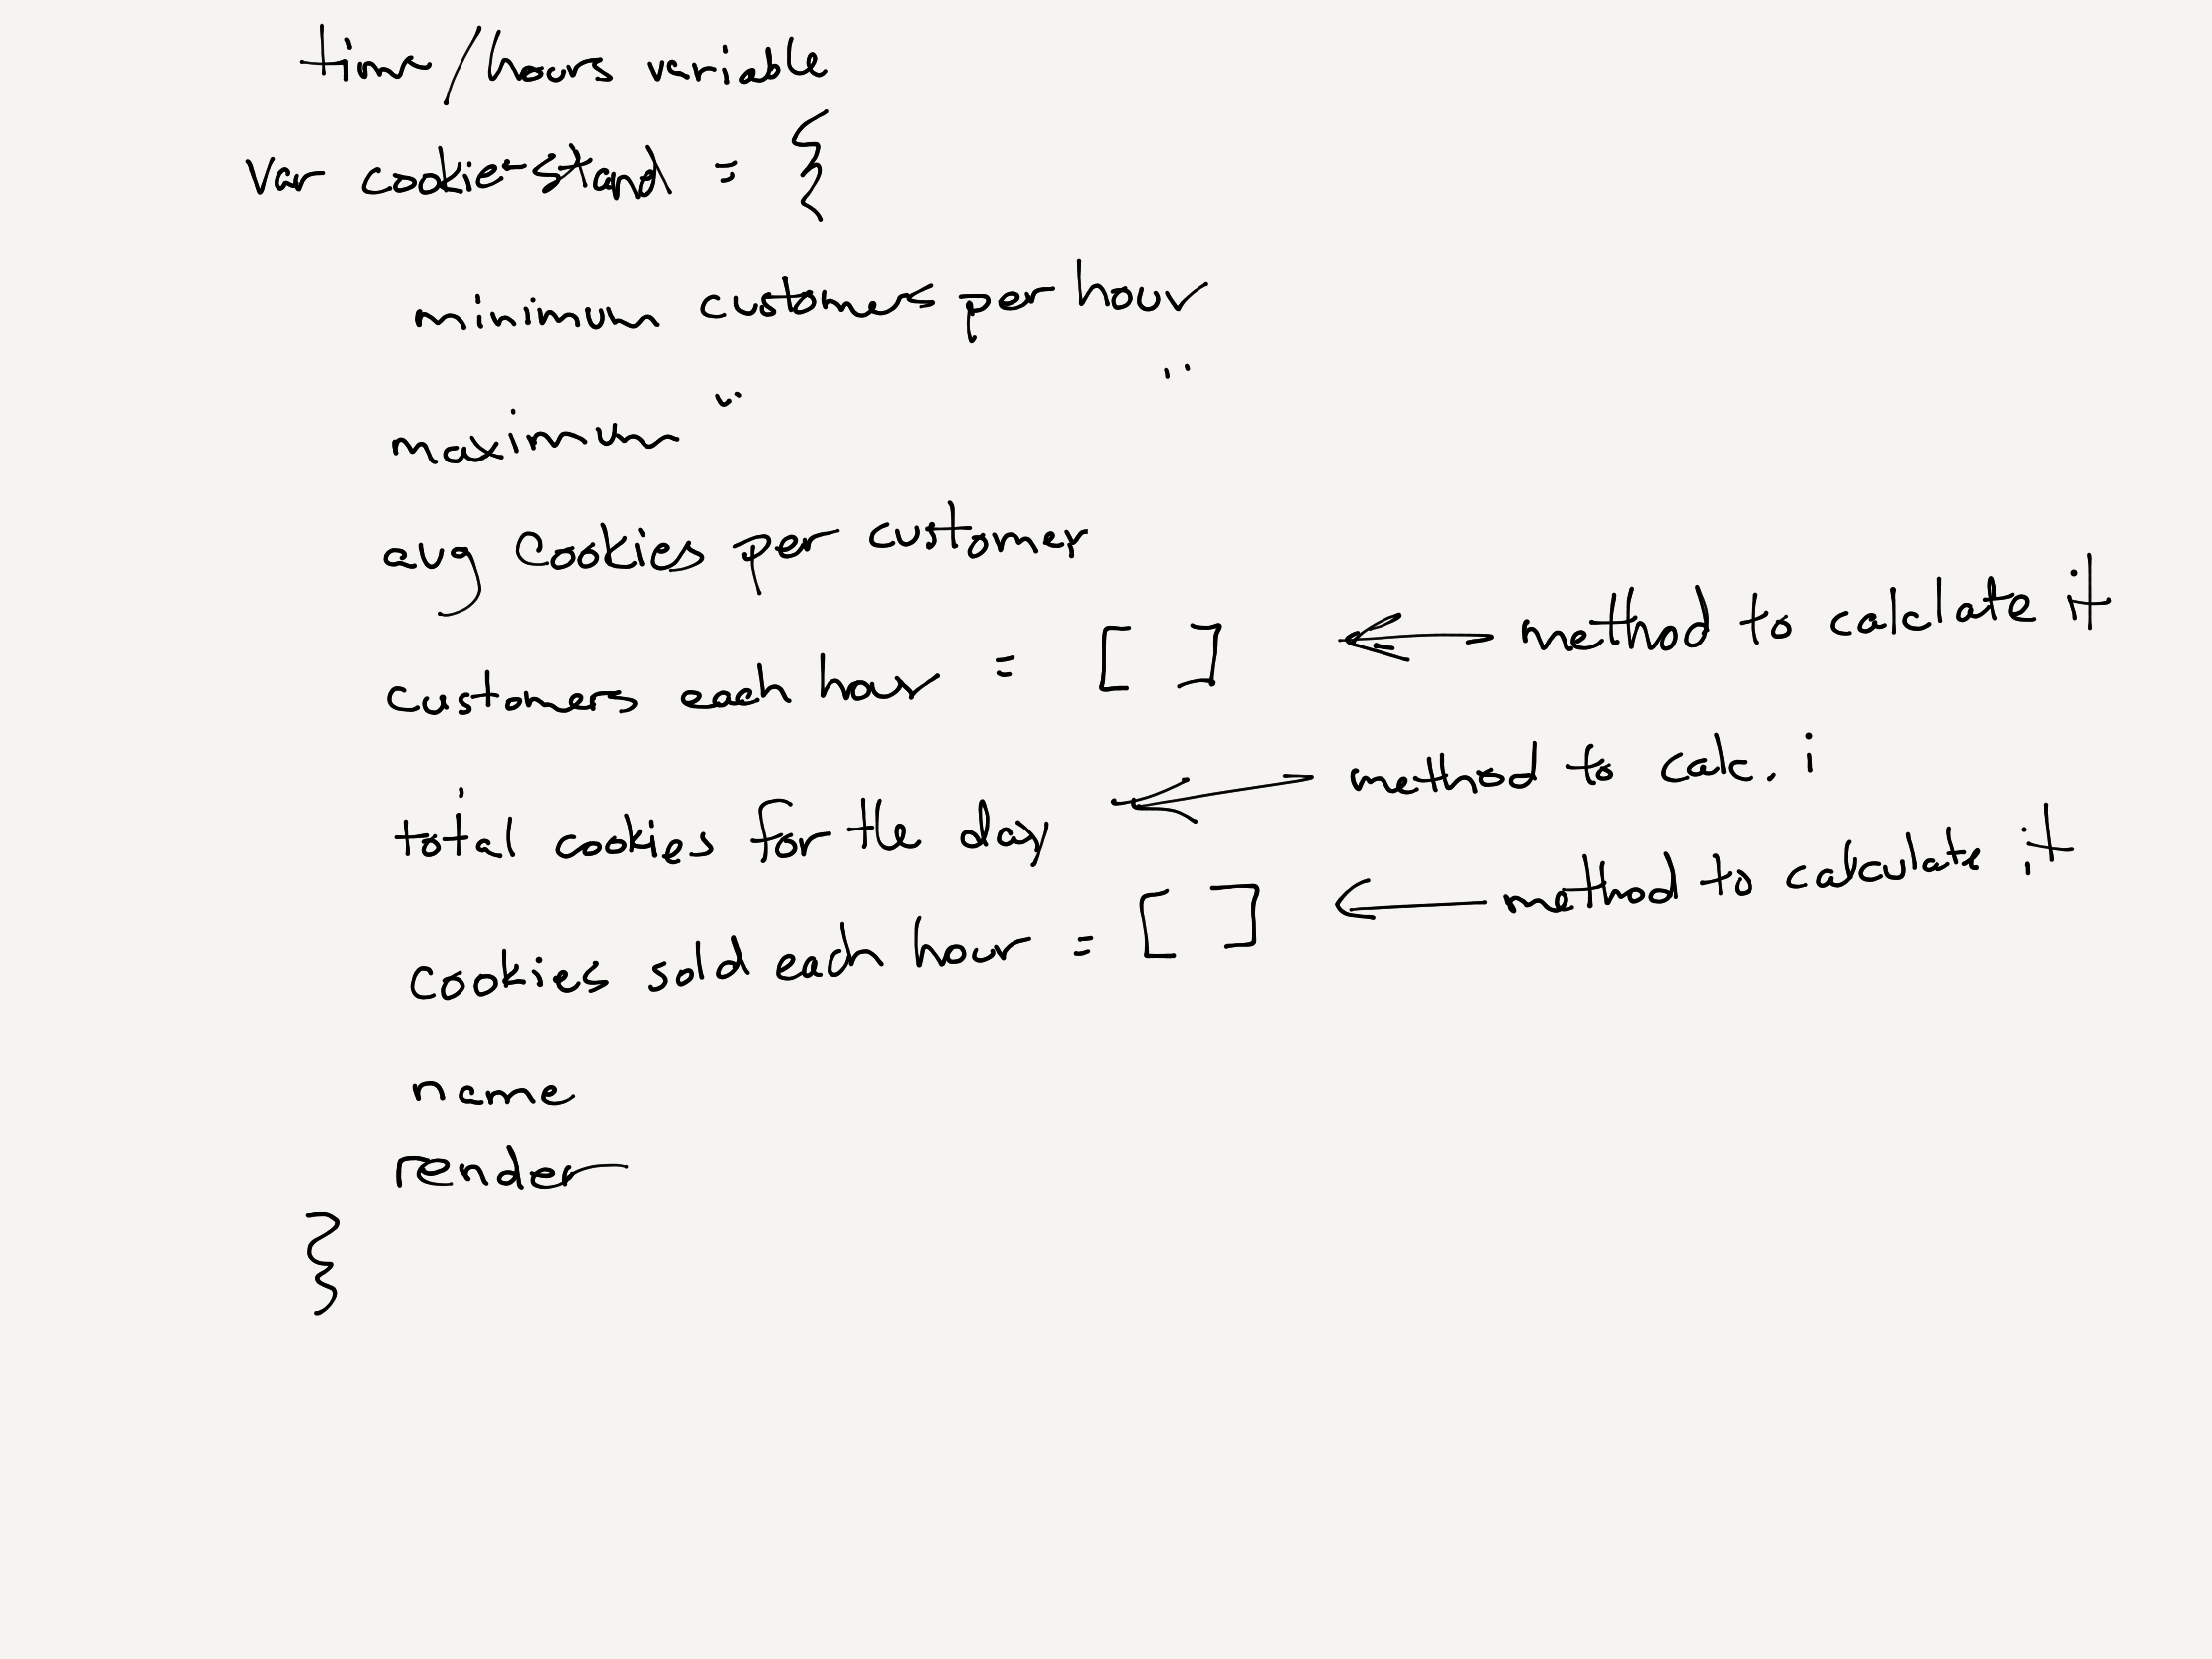 time/hours variable
var cookie-stand = {
minimum customers per hour
maximum " "
avg cookies per customer
customers each hour = [ ] ← method to calclate it
total cookies for the day ← method to calc. i
cookies sold each hour = [ ] ← method to calculate it
name
render
}